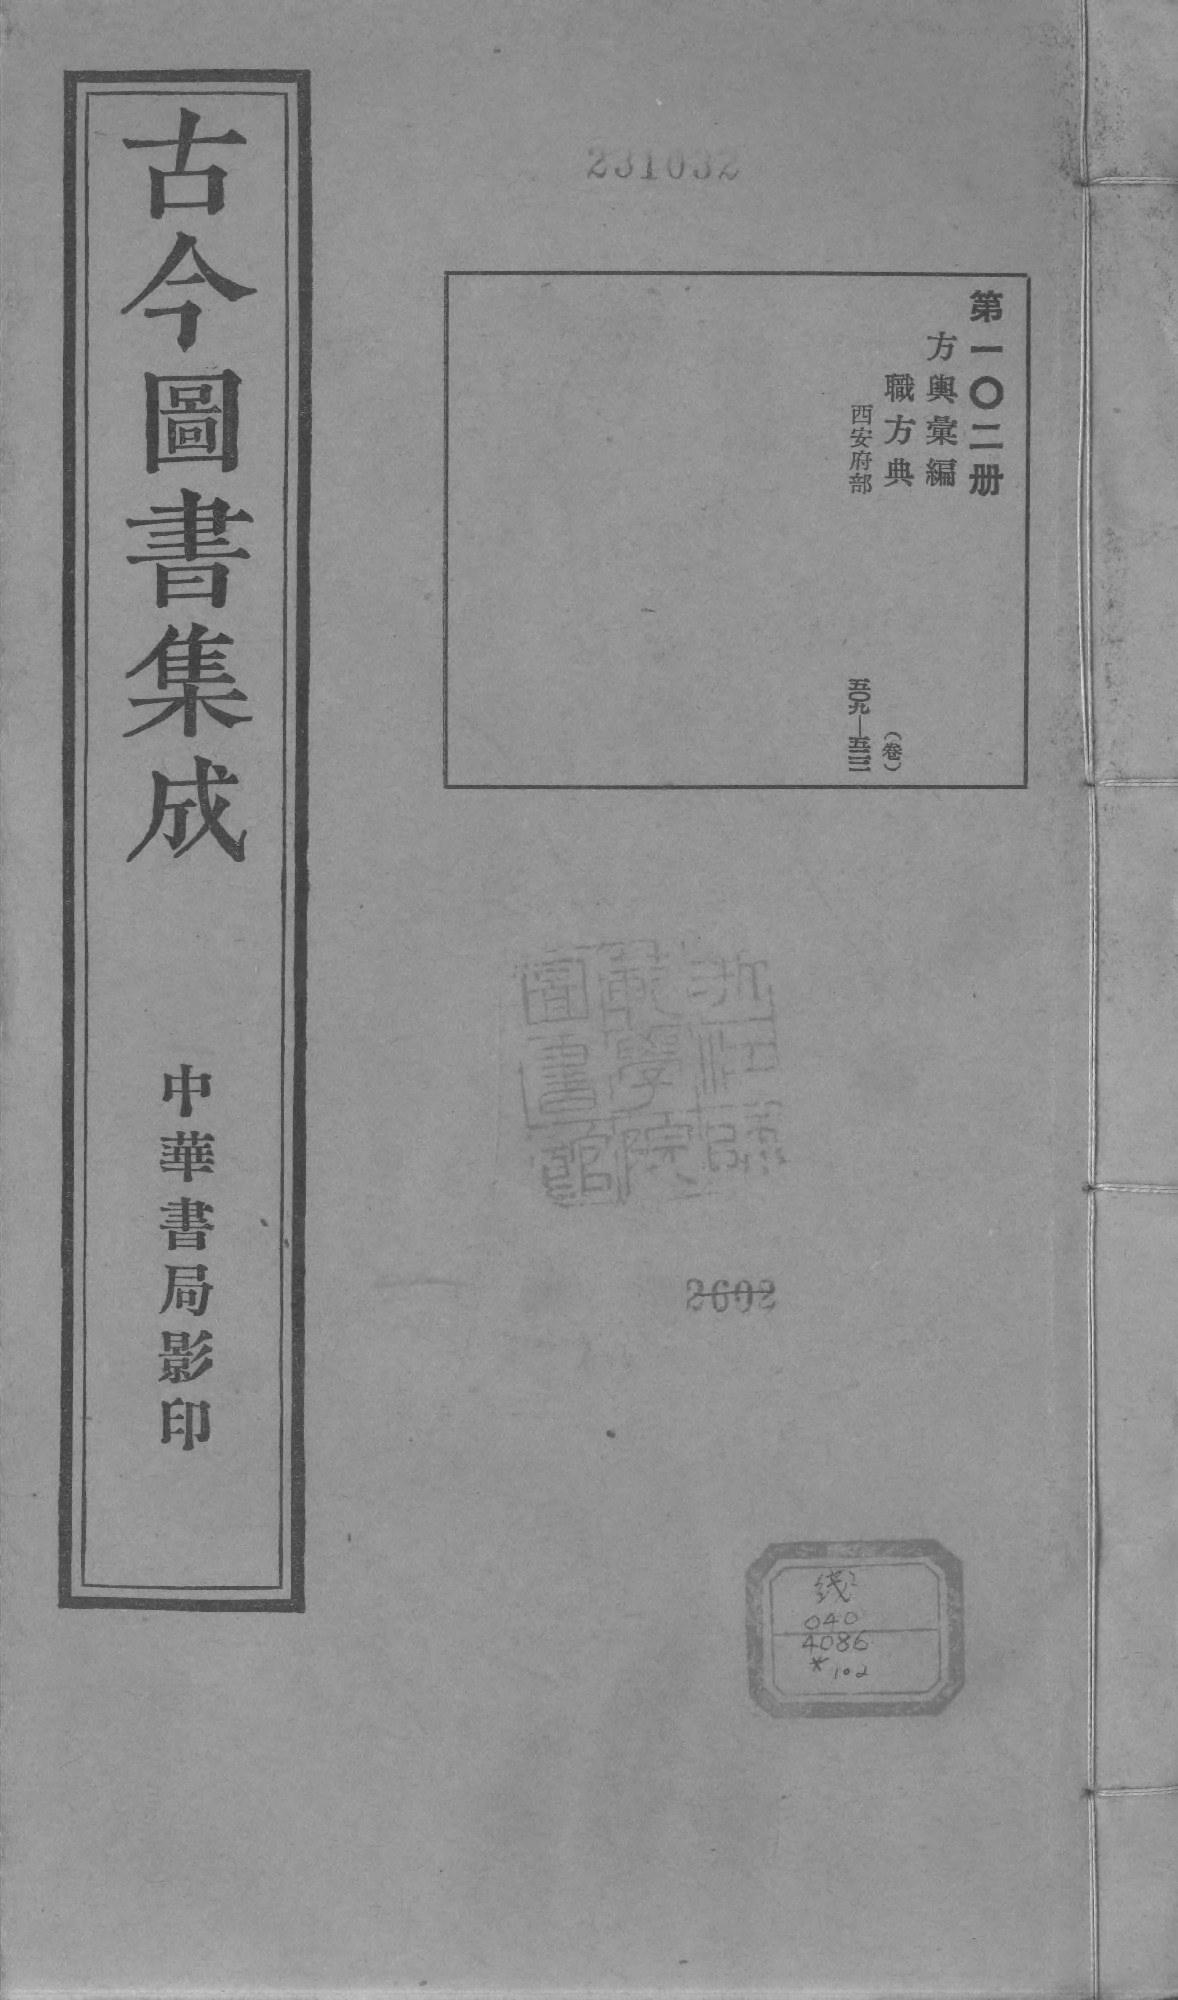 231032
第一〇二册
方輿彙編
職方典
西安府部
(卷)
五〇九—五二二
古今圖書集成
中華書局影印
浙江師
範學院
圖書館
2602
线
040
4086
*102